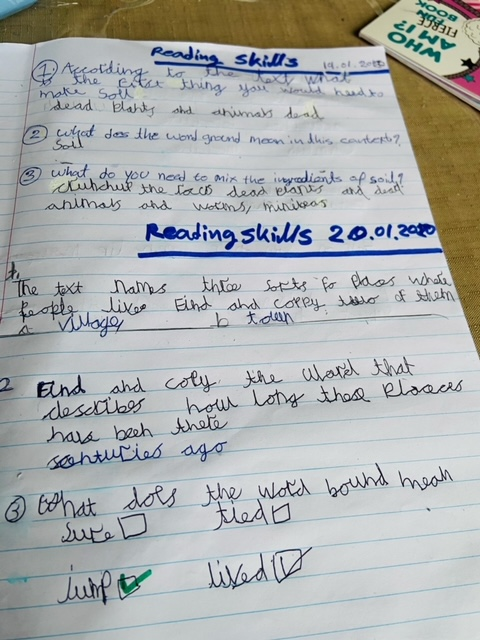 WHO
AM I?
FIERCE
BOOK
Reading Skills 19.01.2020
1 According to the text what
is the first thing you would need to
make Soil
dead plants and animals dead
2 what does the word ground mean in this context?
Soil
3 what do you need to mix the ingredients of soil?
the rocks dead plants and dead
animals and worms, minibeas
Reading skills 20.01.2020
1.
The text names three sorts fo places where
people live. Find and coppy two of them
a village b town
2 Find and coty the word that
describes how long these Plaeces
have been there
centuries ago
3 What does the word bound mean
sure tied
jump lived